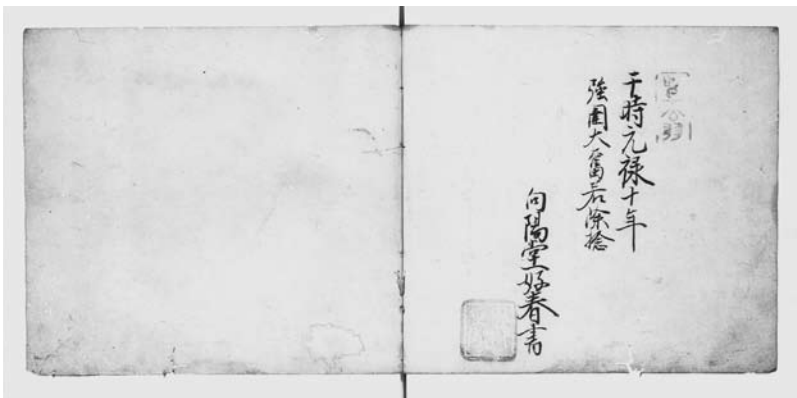 于時元禄十年
強圉大奮若除捻
向陽堂好春書